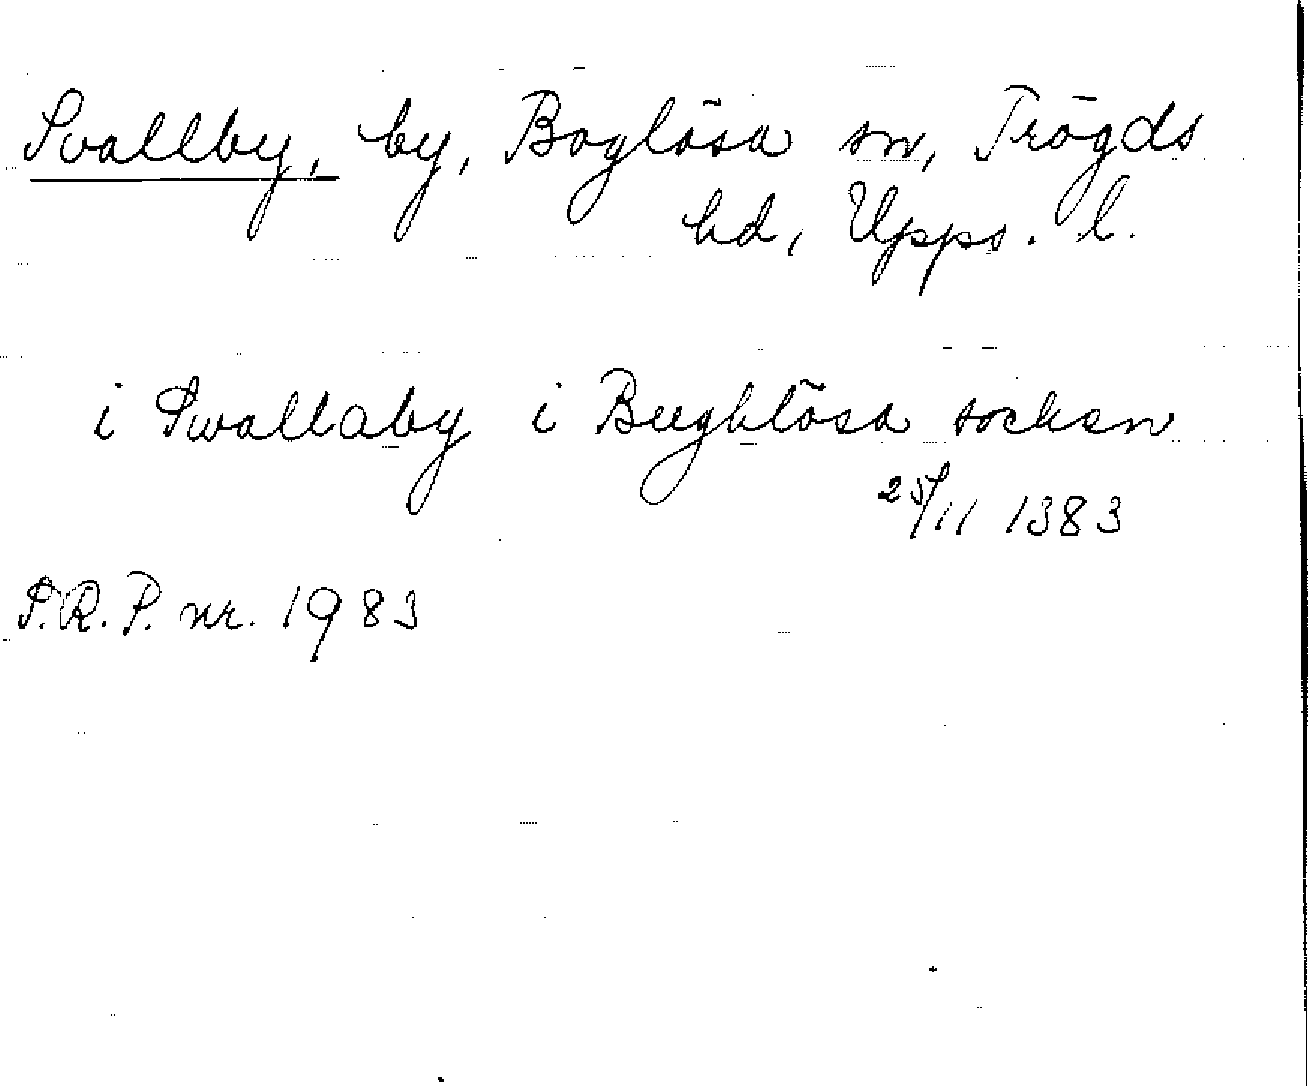 Svallby, by, Boglösa sn, Trögds
hd, Upps. l.
i Swallaby i Bughlösa socken
25/11 1383
S.R.P. nr. 1983